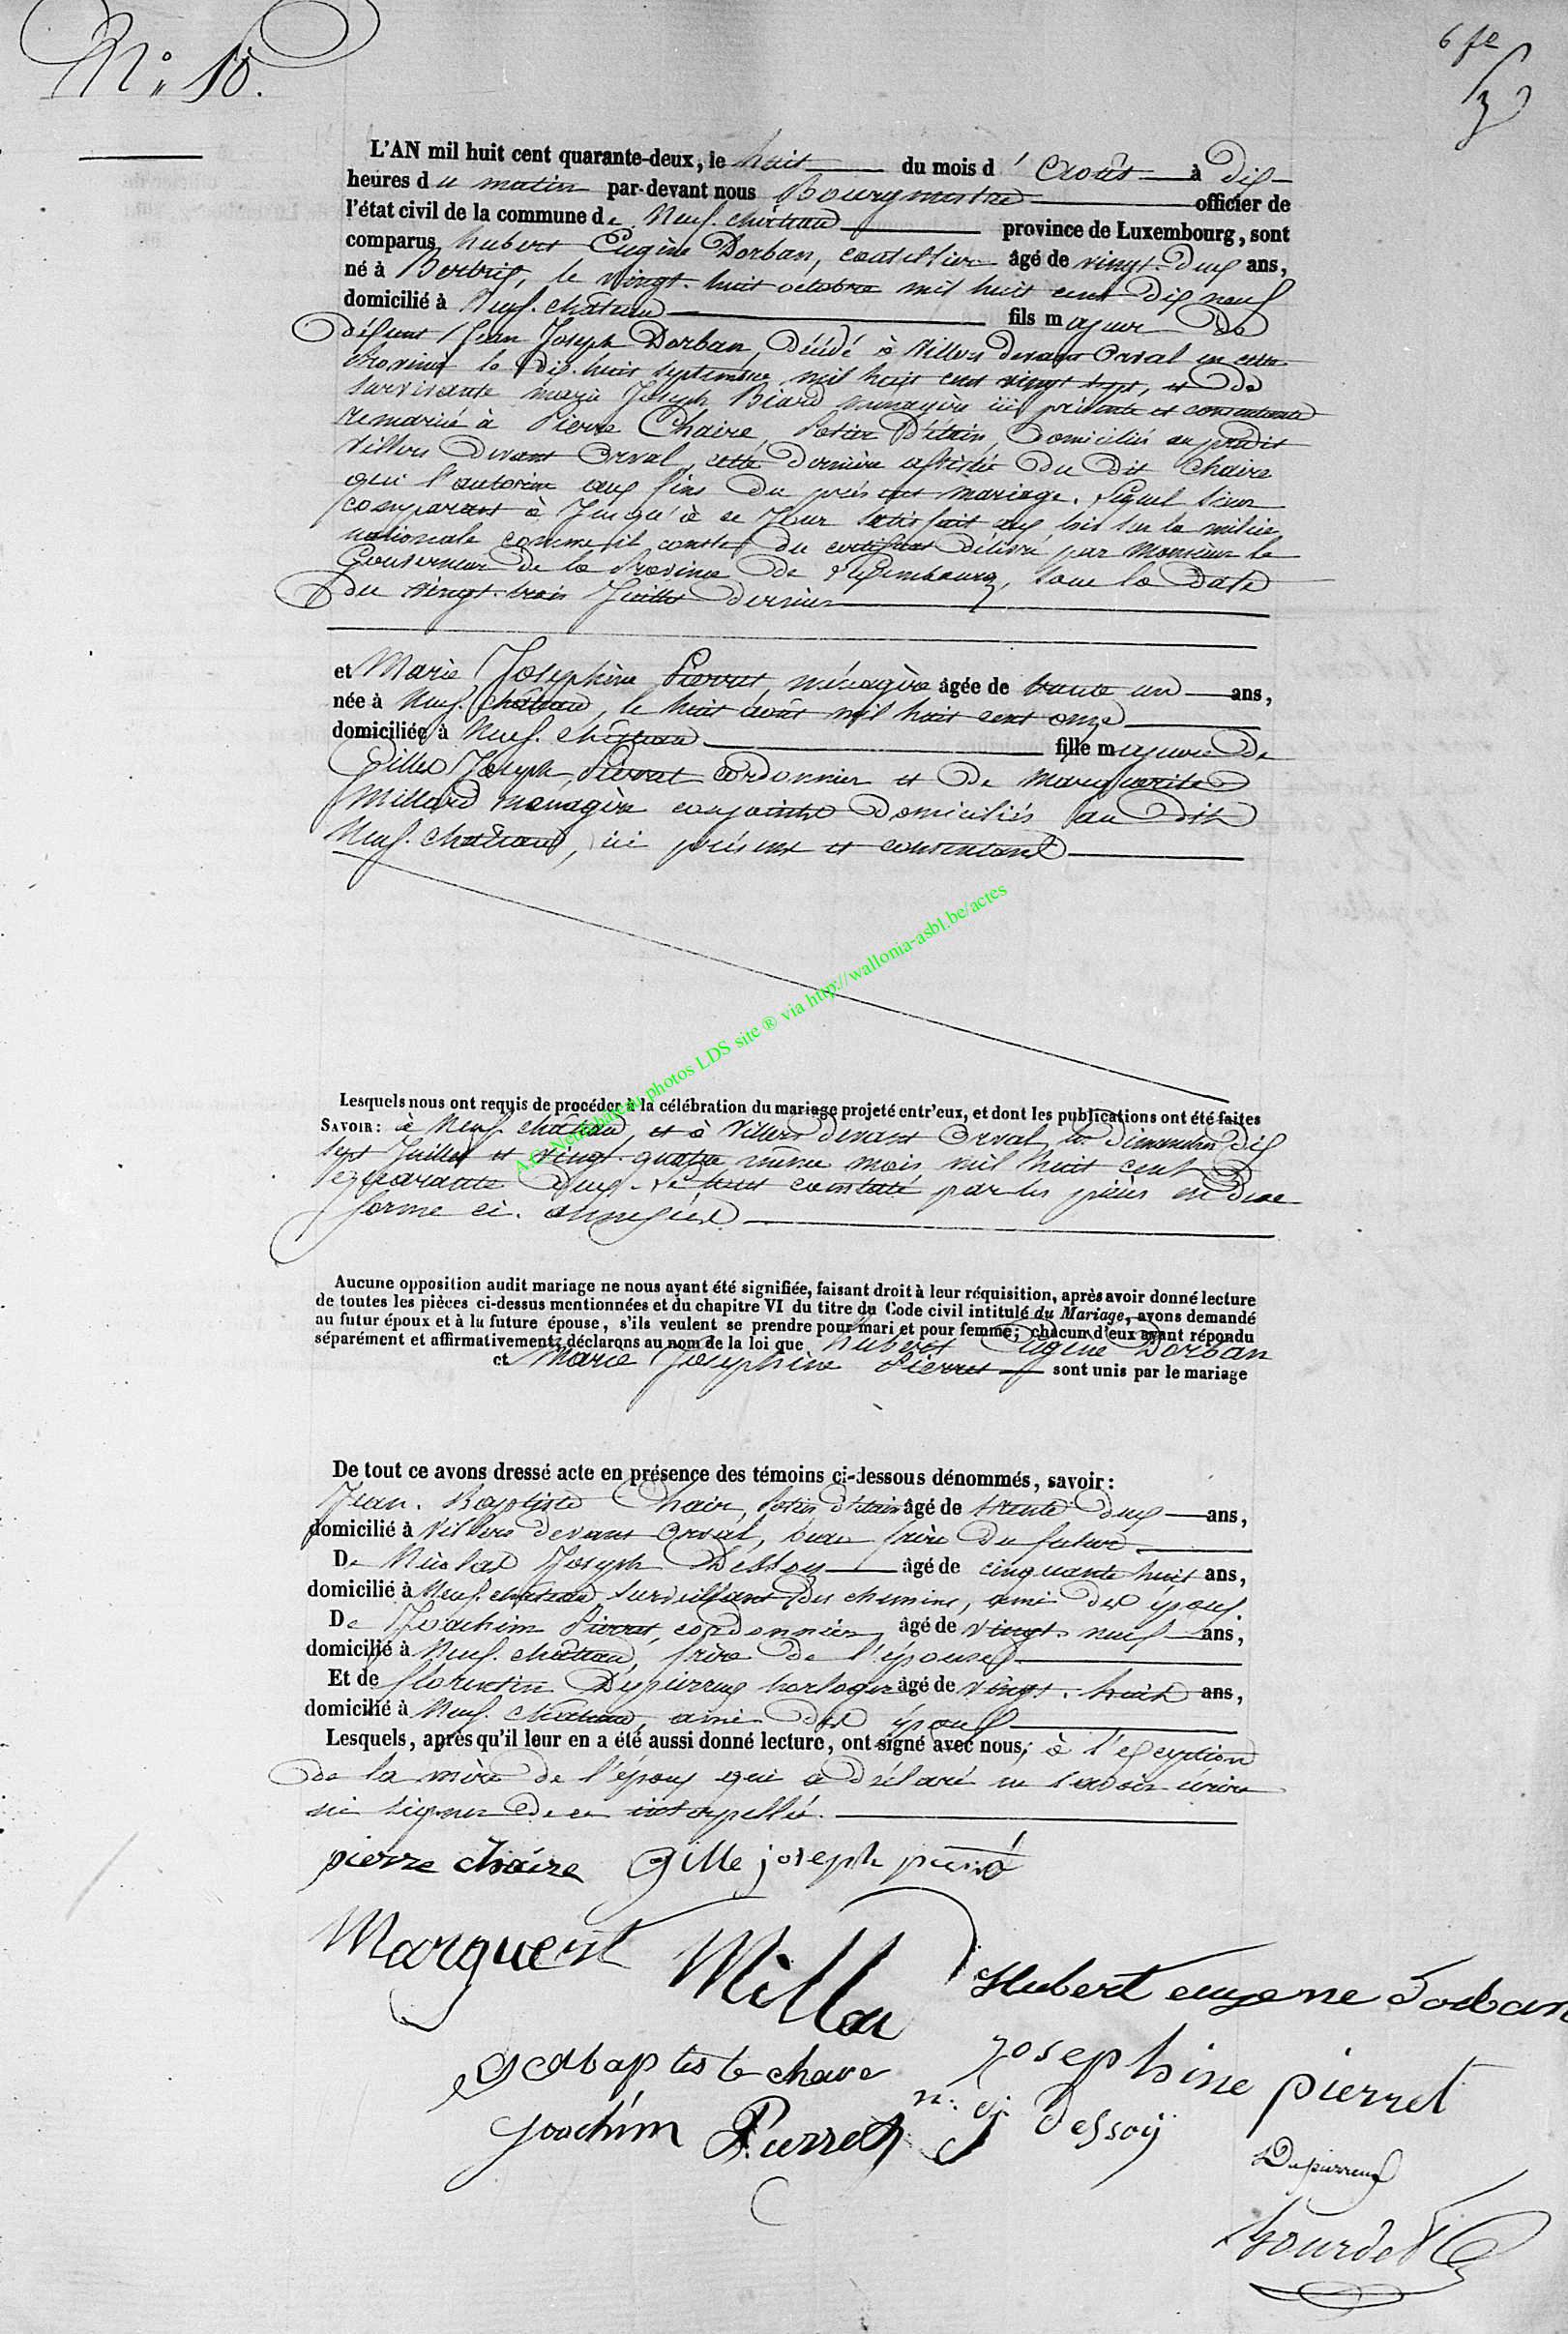 N° 10.
6 fe
L'AN mil huit cent quarante-deux, le huit du mois d'Août à dix
heures du matin par-devant nous Bourgmestre officier de
l'état civil de la commune de Neuf.château province de Luxembourg, sont
comparus hubert Eugène Dorban, coutellier âgé de vingt-deux ans,
né à Bertrix, le vingt.huit octobre mil huit cent dix neuf
domicilié à Neuf.château fils majeur de
défunt Jean Joseph Dorban, décédé à Villers devant Orval en cette
Province le dix.huit septembre mil huit cent vingt sept, et de
survivante marie Joseph Biard ménagère ici présente et consentante
remarié à Pierre Chaire, Potier D'étain, Domiciliés au prédit
Villers Devant Orval, cette dernière assistée Du Dit Chaire
qui l'autorise aux fins du présent mariage. Lequel sieur
comparant à Jusqu'à ce Jour satisfait aux lois sur la milice
nationale comme il conste du certificat délivré par Monsieur le
Gouverneur De la Province De Luxembourg, sous la Date
du vingt.trois Juillet dernier
et Marie Josephine Pierret, ménagère âgée de trente un ans,
née à Neuf.château, le huit août mil huit cent onze
domiciliée à Neuf.château fille majeure De
Gilles Joseph Pierret cordonnier et De Marguerite
Millard ménagère conjoints Domiciliés au Dit
Neuf.château, ici présent et consentant
A.C. Neufchâteau photos LDS site ® via http://wallonia-asbl.be/actes
Lesquels nous ont requis de procéder à la célébration du mariage projeté entr'eux, et dont les publications ont été faites
SAVOIR: à Neuf.château, et à Villers devant Orval, les Dimanches dix
sept Juillet et vingt.quatre même mois mil huit cent
quarante Deux. Le tout constaté par les pièces en Due
forme ci.annexées
Aucune opposition audit mariage ne nous ayant été signifiée, faisant droit à leur réquisition, après avoir donné lecture
de toutes les pièces ci-dessus mentionnées et du chapitre VI du titre du Code civil intitulé du Mariage, avons demandé
au futur époux et à la future épouse, s'ils veulent se prendre pour mari et pour femme; chacun d'eux ayant répondu
séparément et affirmativement; déclarons au nom de la loi que hubert Eugène Dorban
et Marie Josephine Pierret sont unis par le mariage
De tout ce avons dressé acte en présence des témoins ci-dessous dénommés, savoir:
Jean.Baptiste Chair, Potier d'étain âgé de trente deux ans,
domicilié à Villers devant Orval, beau frère du futur
De Nicolas Joseph Dessoy âgé de cinquante huit ans,
domicilié à Neuf.château surveillant des chemins, ami des époux.
De Joachim Pierret, cordonnier, âgé de vingt.neuf ans,
domicilié à Neuf.château, frère de l'épouse
Et de florentin Depierreux horloger âgé de vingt.huit ans,
domicilié à Neuf.château, ami des époux
Lesquels, après qu'il leur en a été aussi donné lecture, ont signé avec nous; à l'exception
De la mère de l'époux qui a déclaré ne savoir écrire
ni signer de ce interpellée.
pierre chaire Gille joseph pierré
Marguerit Milla
Hubert eugene Dorban
jean baptiste chare
Josephine pierret
Joachim Pierret
n. j. dessoÿ
Depierreux
Gourdet